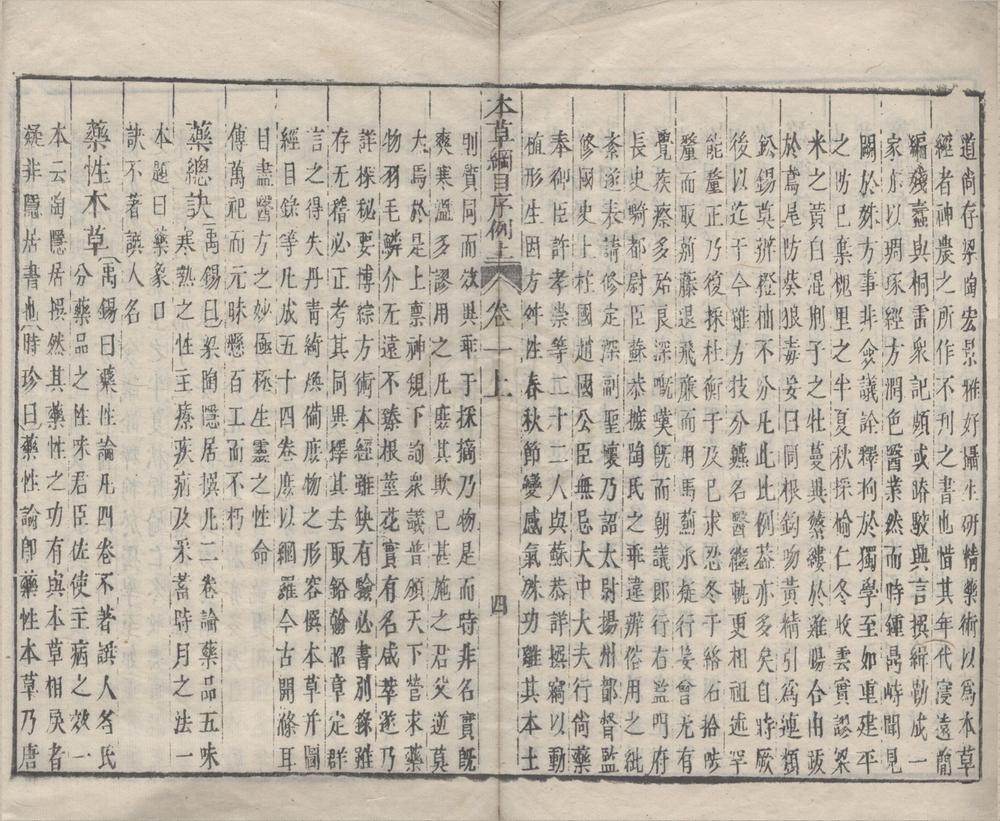 道尚存梁陶宏景雅好攝生研精藥術以爲本草
經者神農之所作不刊之書也惜其年代寖遠簡
編殘蠹與桐雷衆記頗或踳駁興言撰緝勒成一
家亦以琱琢經方潤色醫業然而時鍾鼎峙聞見
闕於殊方事非僉議詮釋拘於獨學至如重建平
之防已棄槐里之半夏秋採榆仁冬收雲實謬粱
米之黄白混荆子之牡蔓異蘩縷於雞腸合由跋
於鳶尾防葵狼毒妄曰同根鉤吻黄精引爲連類
鉛錫莫辨橙柚不分凡此比例葢亦多矣自時厥
後以迄于今雖方技分鑣名醫繼軌更相祖述罕
能釐正乃復採杜衡于及已求忍冬于絡石捨陟
釐而取莂藤退飛廉而用馬薊承疑行妄曾无有
覺疾瘵多殆良深嘅嘆旣而朝議郎行右監門府
長史騎都尉臣蘇恭摭陶氏之乖違辨俗用之紕
紊遂表請修定深副聖懷乃詔太尉揚州都督監
修國史上柱國趙國公臣無忌大中大夫行尚藥
奉御臣許孝崇等二十二人與蘇恭詳撰竊以動
植形生因方舛性春秋節變感氣殊功離其本土
本草綱目序例上 卷一上 四
則質同而效異乖于採摘乃物是而時非名實旣
爽寒溫多謬用之凡庶其欺已甚施之君父逆莫
大焉於是上禀神規下詢衆議普頒天下營求藥
物羽毛鱗介无遠不臻根莖花實有名咸萃遂乃
詳探秘要博綜方術本經雖缺有驗必書別錄雖
存无稽必正考其同異擇其去取鉛翰昭章定群
言之得失丹青綺煥備庶物之形容撰本草并圖
經目錄等凡成五十四卷庶以網羅今古開滌耳
目盡醫方之妙極極生靈之性命
傳萬祀而元昧懸百工而不朽
藥總訣禹錫曰梁陶隱居撰凡二卷論藥品五味
寒熱之性主療疾病及采蓄時月之法一
本題曰藥象口
訣不著譔人名
藥性本草禹錫曰藥性論凡四卷不著譔人名氏
分藥品之性味君臣佐使主病之效一
本云陶隱居撰然其藥性之功有與本草相戾者
疑非隱居書也時珍曰藥性論卽藥性本草乃唐